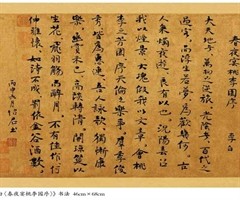 春夜宴桃李園序
李白
夫天地者萬物之逆旅光陰者百代之
過客而浮生若夢為歡幾何古
人秉燭夜遊良有以也況陽春召
我以煙景大塊假我以文章會桃
李之芳園序天倫之樂事群季俊
秀皆為惠連吾人詠歌獨慚康
樂幽賞未已高談轉清開瓊筵以
坐花飛羽觴而醉月不有佳作何
伸雅懷如詩不成罰依金谷酒數
白《春夜宴桃李园序》书法 46cm×68cm